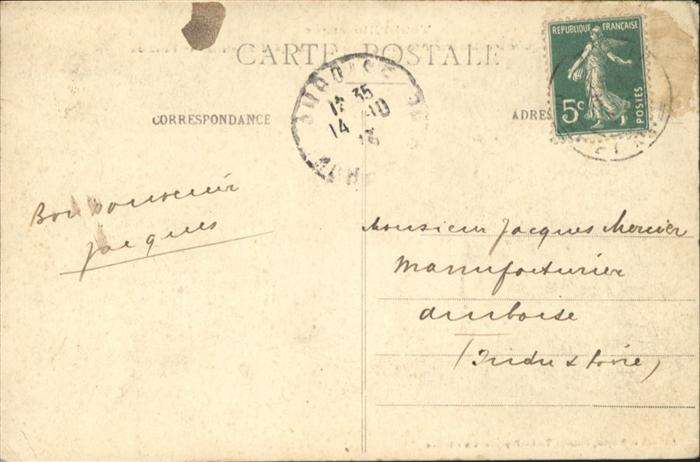 CARTE POSTALE
REPUBLIQUE FRANÇAISE
5c
POSTES
CORRESPONDANCE
ADRES
35
14 -10
13
Bon souvenir
Jacques
Monsieur Jacques Mercier
Manufacturier
Amboise
(Indre & Loire)